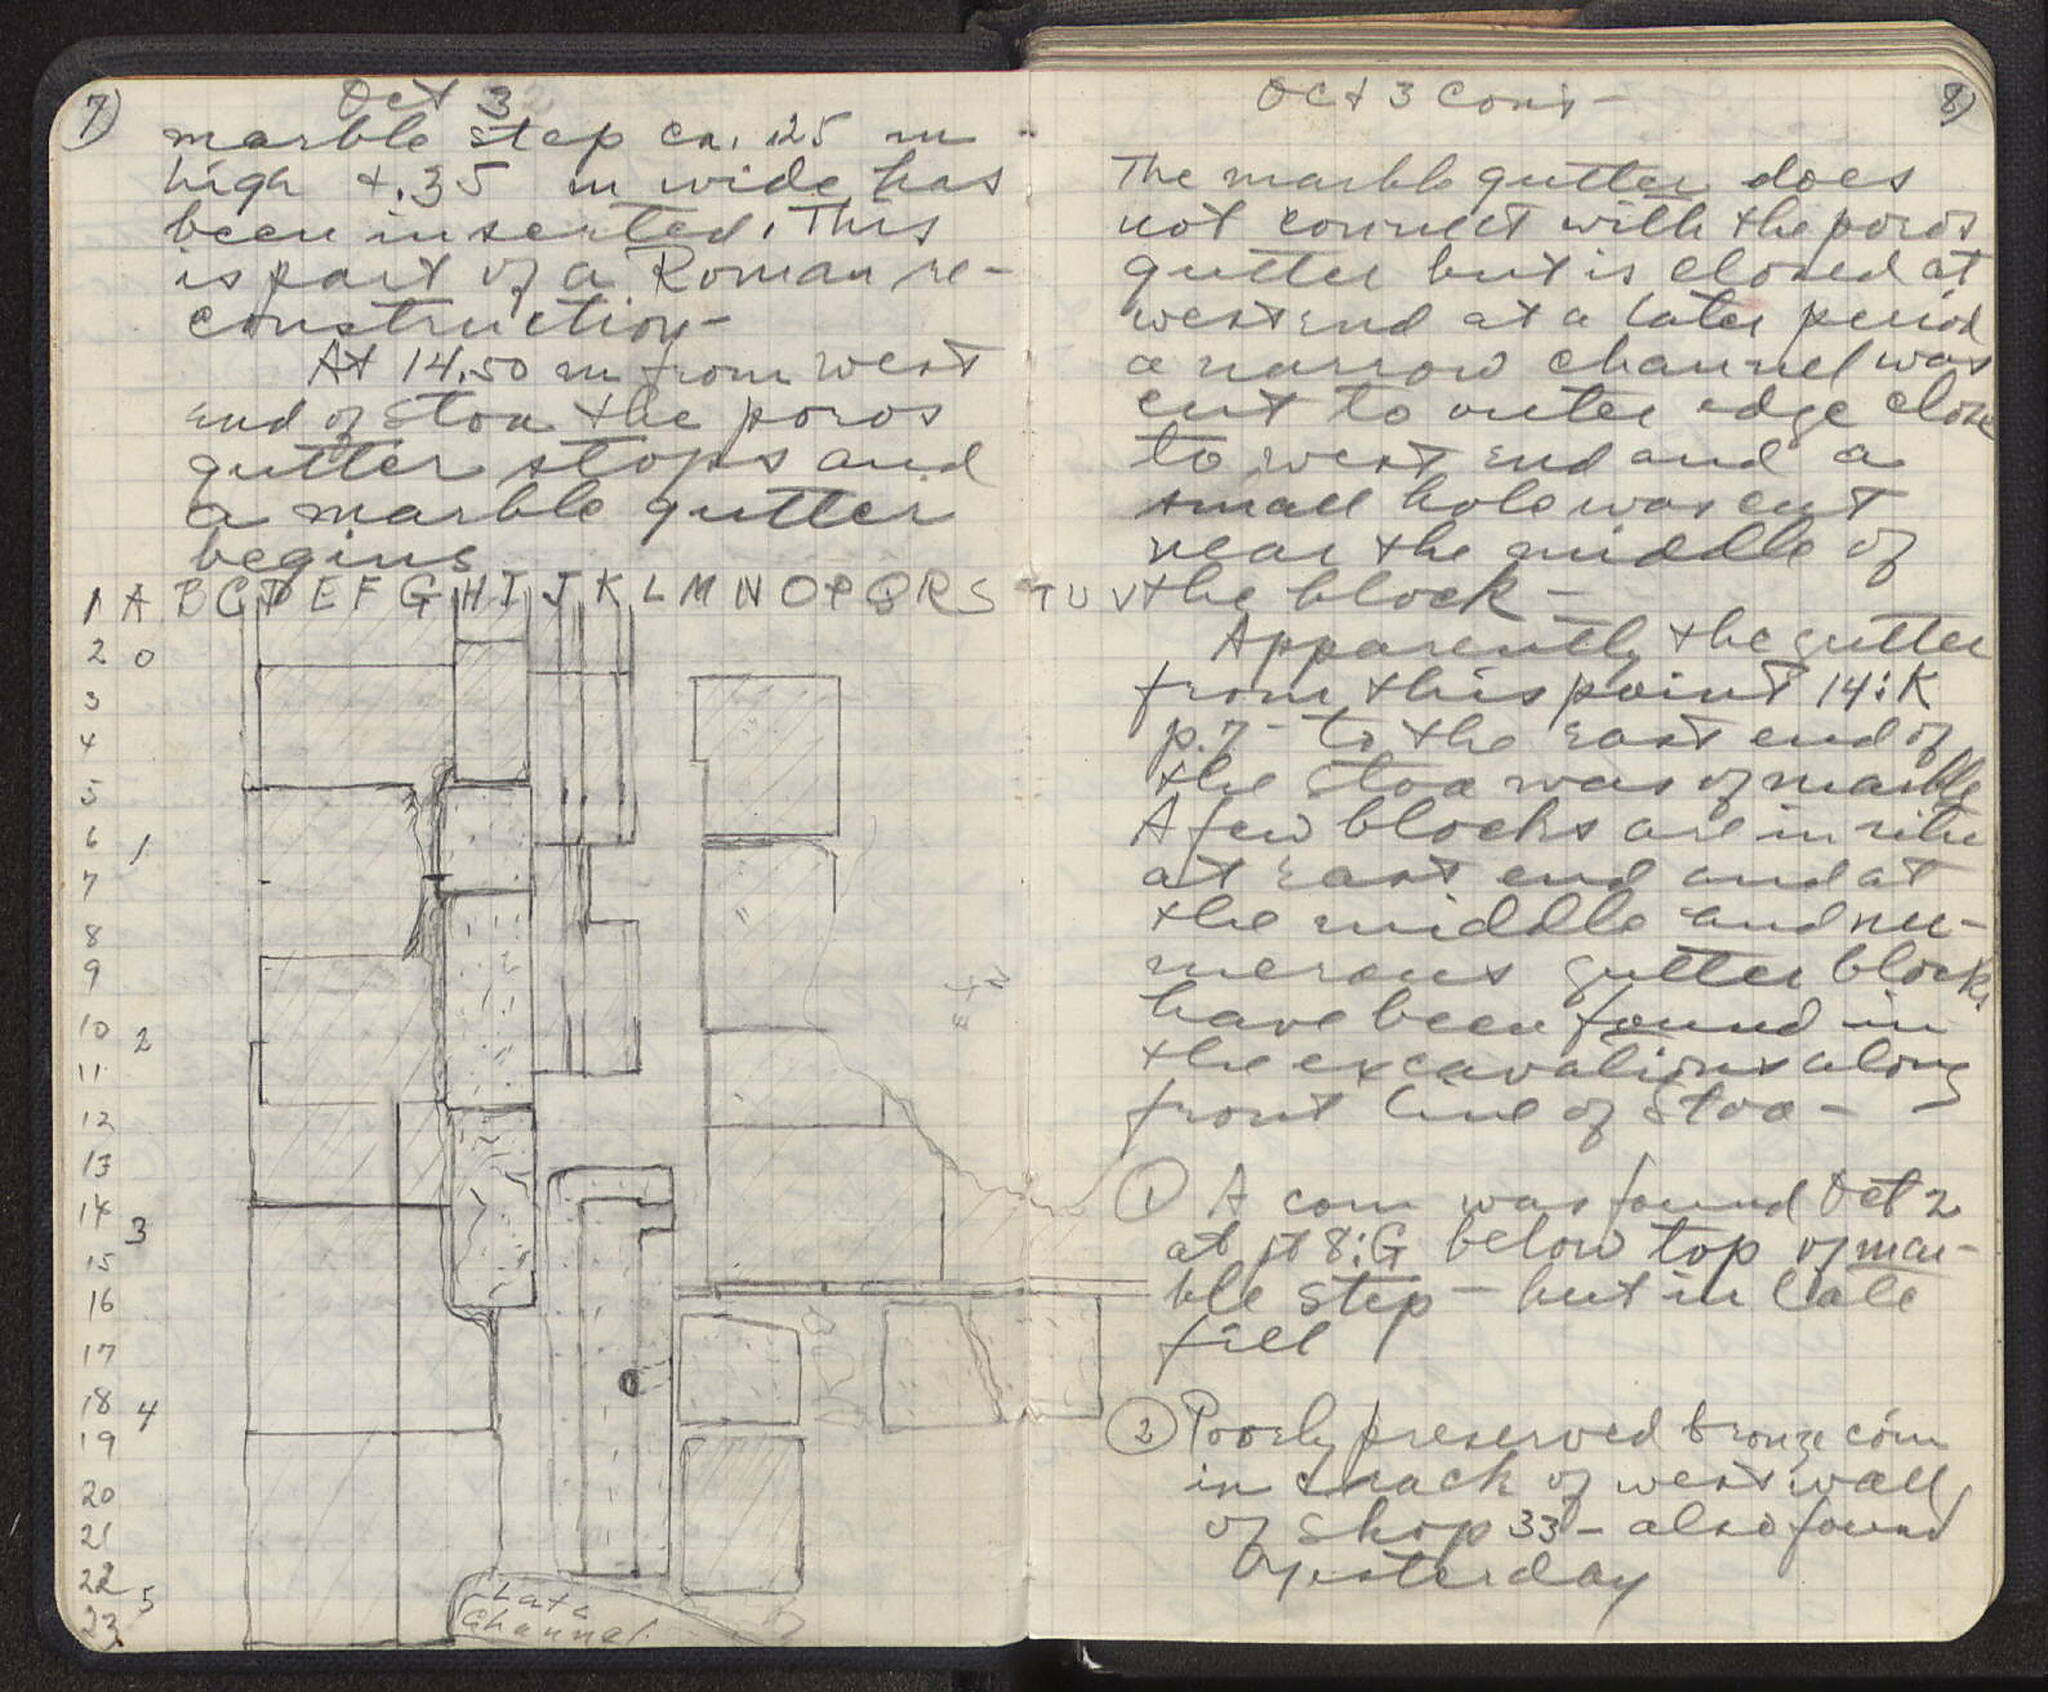 7)
Oct 3
marble step ca. .25 m
high + .35 m wide has
been inserted. This
is part of a Roman re-
construction-
At 14.50 m from west
end of Stoa the poros
gutter stops and
a marble gutter
begins
A B C D E F G H I J K L M N O P Q R S T U V
1
2 0
3
4
5
6 1
7
8
9
10 2
11
12
13
14 3
15
16
17
18 4
19
20
21
22 5
23
Late
Channel
8)
Oct 3 Cont-
The marble gutter does
not connect with the poros
gutter but is closed at
west end at a later period
a narrow channel was
cut to outer edge close
to west end and a
small hole was cut
near the middle of
the block-
Apparently the gutter
from this point 14:K
p.7- to the east end of
the Stoa was of marble
A few blocks are in situ
at east end and at
the middle and nu-
merous gutter blocks
have been found in
the excavations along
front line of Stoa-
1 A coin was found Oct 2
at pt 8:G below top of mar-
ble step - but in late
fill
2 Poorly preserved bronze coin
in crack of west wall
of Shop 33 - also found
yesterday